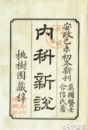 安政己未初冬新刊
英國醫士
合信氏著
内科新説
桃樹園藏梓